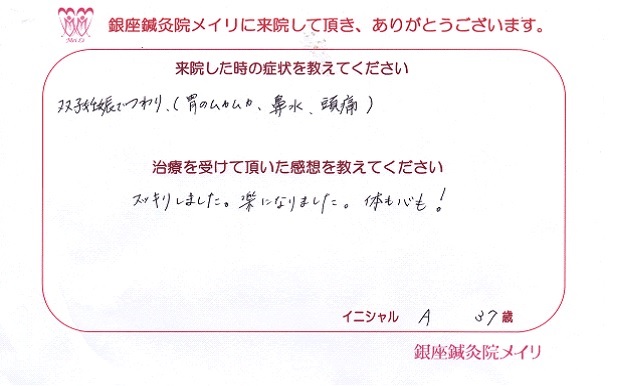 銀座鍼灸院メイリに来院して頂き、ありがとうございます。
来院した時の症状を教えてください
双子妊娠でつわり、(胃のムカムカ、鼻水、頭痛)
治療を受けて頂いた感想を教えてください
スッキリしました。楽になりました。体も心も!
イニシャル A 37歳
銀座鍼灸院メイリ